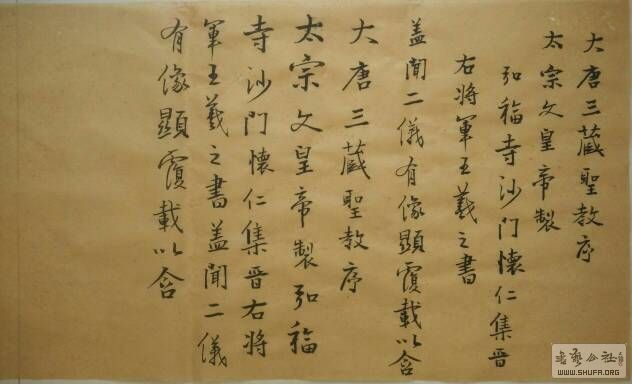 大唐三藏聖教序
太宗文皇帝製
弘福寺沙門懷仁集晋
右將軍王羲之書
盖聞二儀有像顯覆載以含
大唐三藏聖教序
太宗文皇帝製弘福
寺沙門懷仁集晋右將
軍王羲之書盖聞二儀
有像顯覆載以含
WWW.SHUFA.ORG